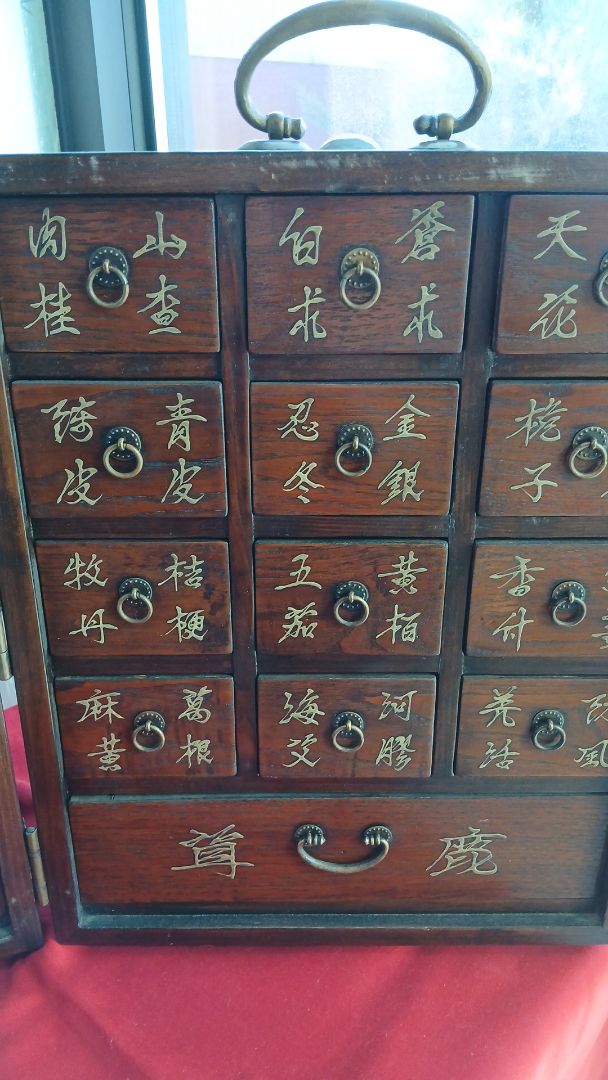 天花
蒼求
白求
山查
肉桂
梔子
金銀
忍冬
青皮
陳皮
香付
黄栢
五茄
桔梗
牧丹
羌活
河膠
海艾
萬根
麻黄
鹿茸